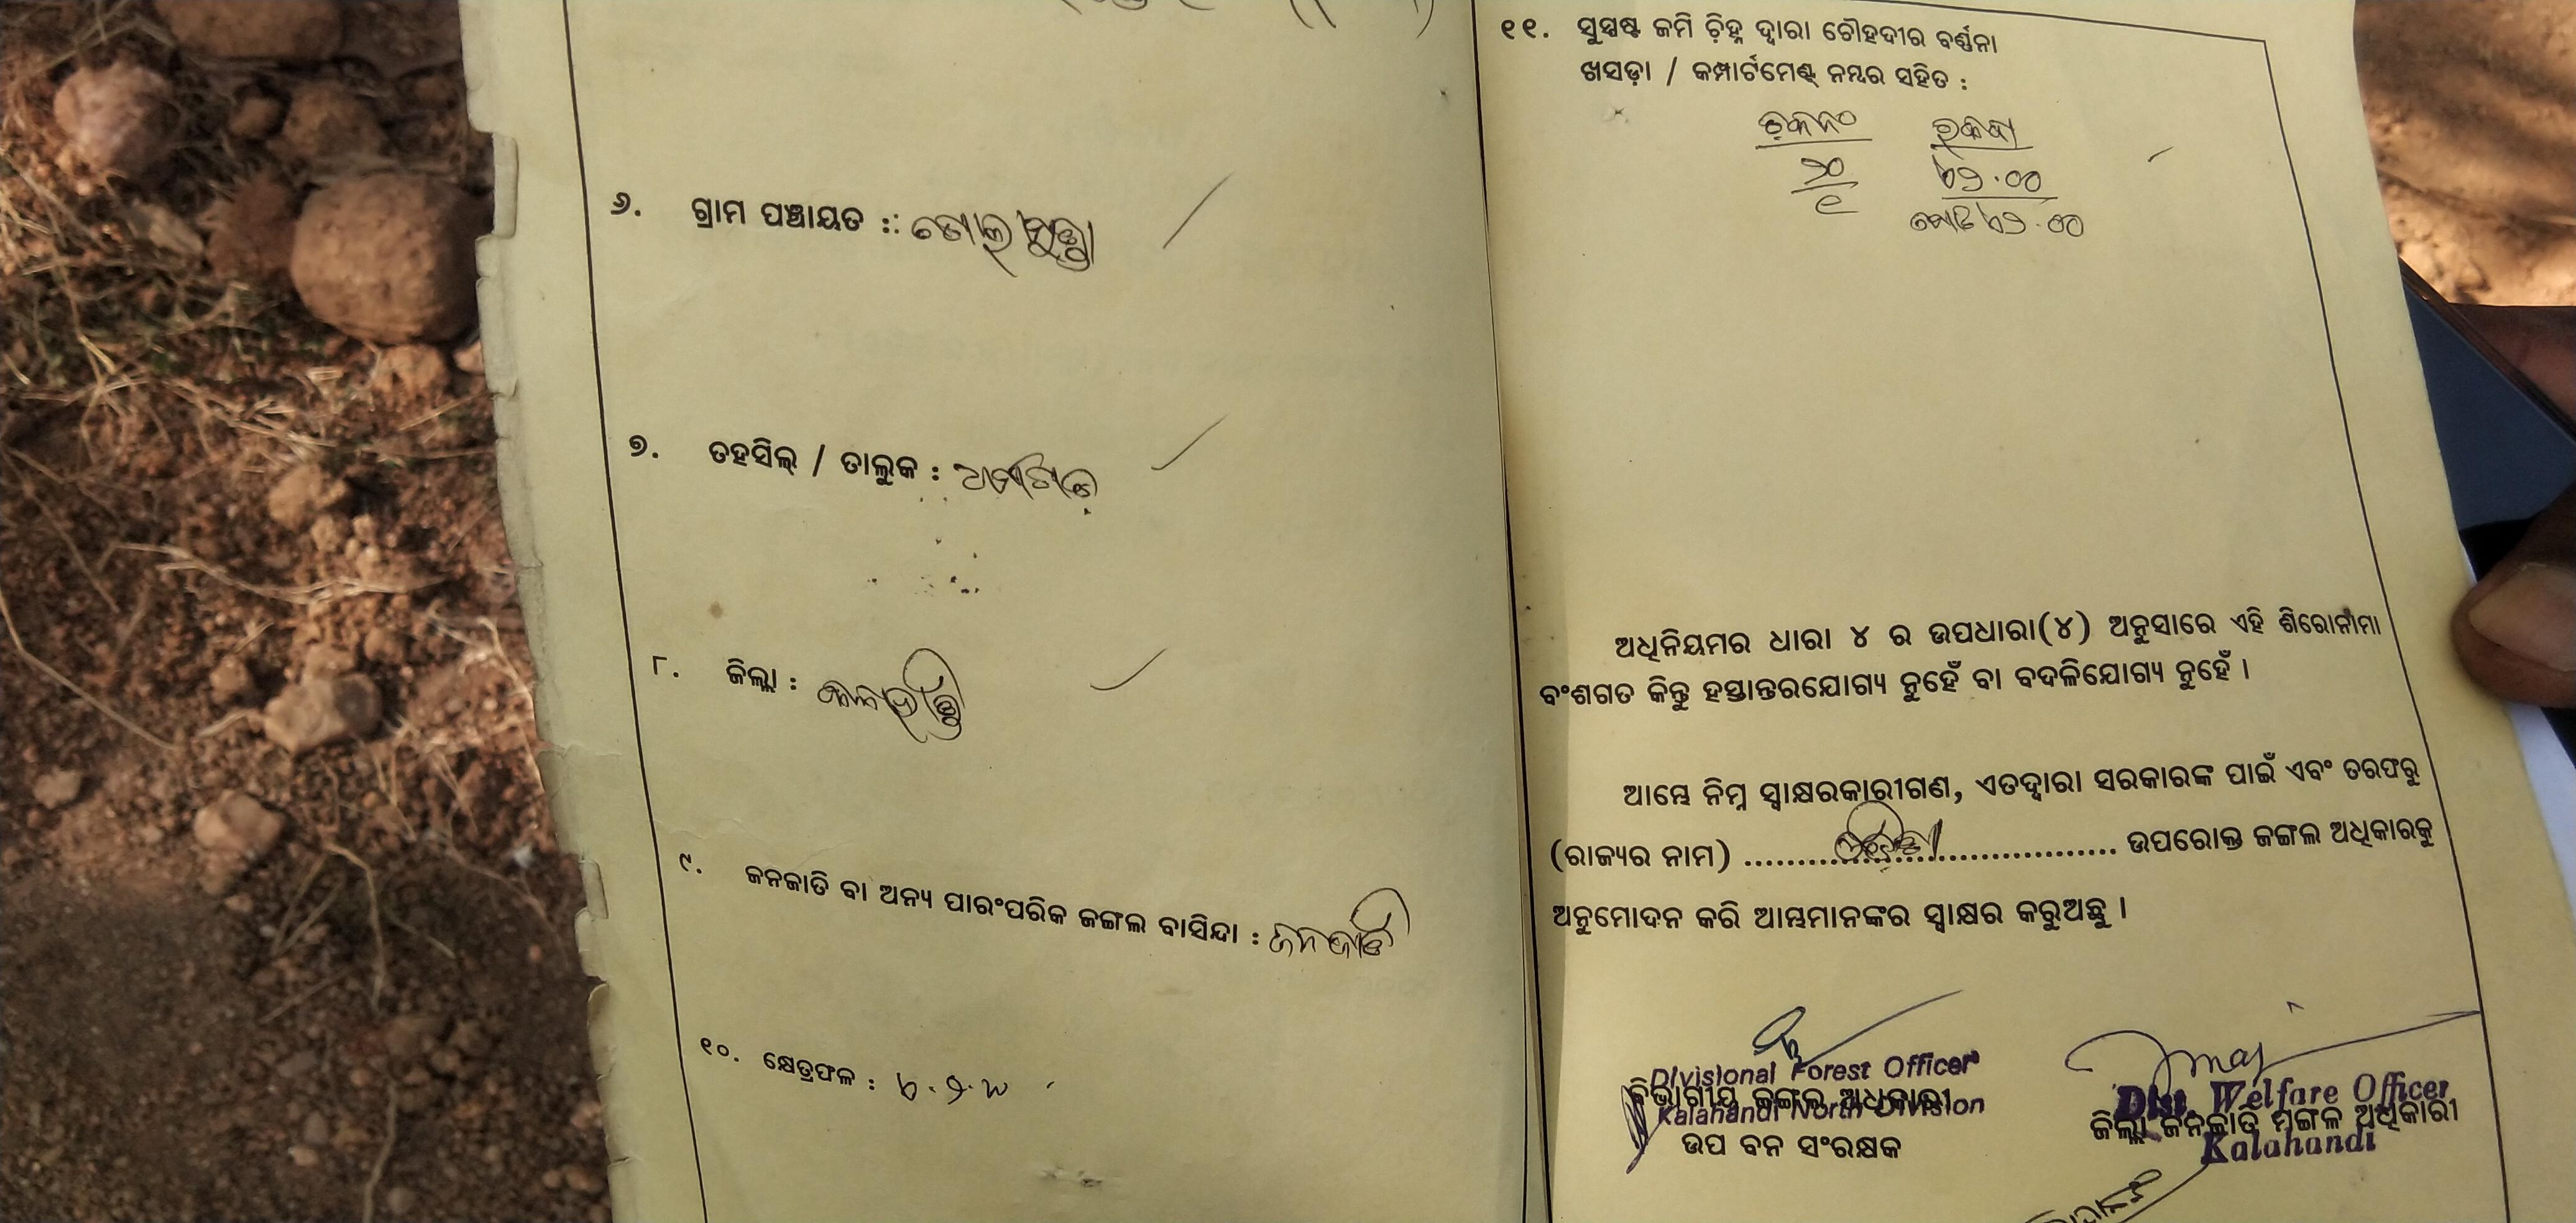 ୬. ଗ୍ରାମ ପଞ୍ଚାୟତ :
୭. ତହସିଲ୍ / ତାଲୁକ :
୮. ଜିଲ୍ଲା : କଳାହାଣ୍ଡି
୯. ଜନଜାତି ବା ଅନ୍ୟ ପାରଂପରିକ ଜଙ୍ଗଲ ବାସିନ୍ଦା : ଜନଜାତି
୧୦. କ୍ଷେତ୍ରଫଳ :
୧୧. ସୁସ୍ପଷ୍ଟ ଜମି ଚ଼ିହ୍ନ ଦ୍ୱାରା ଚୌହଦୀର ବର୍ଣ୍ଣନା
ଖସଡ଼ା / କମ୍ପାର୍ଟମେଣ୍ଟ୍ ନମ୍ବର ସହିତ :
ରକବା
୨୦
୯
ଅଧିନିୟମର ଧାରା ୪ ର ଉପଧାରା(୪) ଅନୁସାରେ ଏହି ଶିରୋନାମା
ବଂଶଗତ କିନ୍ତୁ ହସ୍ତାନ୍ତରଯୋଗ୍ୟ ନୁହେଁ ବା ବଦଳିଯୋଗ୍ୟ ନୁହେଁ ।
ଆମ୍ଭେ ନିମ୍ନ ସ୍ୱାକ୍ଷରକାରୀଗଣ, ଏତଦ୍ୱାରା ସରକାରଙ୍କ ପାଇଁ ଏବଂ ତରଫରୁ
(ରାଜ୍ୟର ନାମ) ଓଡ଼ିଶା ଉପରୋକ୍ତ ଜଙ୍ଗଲ ଅଧିକାରକୁ
ଅନୁମୋଦନ କରି ଆମ୍ଭମାନଙ୍କର ସ୍ୱାକ୍ଷର କରୁଅଛୁ ।
Divisional Forest Officer
ବିଭାଗୀୟ ଜଙ୍ଗଲ ଅଧିକାରୀ
Kalahandi North Division
ଉପ ବନ ସଂରକ୍ଷକ
Dist. Welfare Officer
ଜିଲ୍ଲା ଜନଜାତି ମଙ୍ଗଳ ଅଧିକାରୀ
Kalahandi